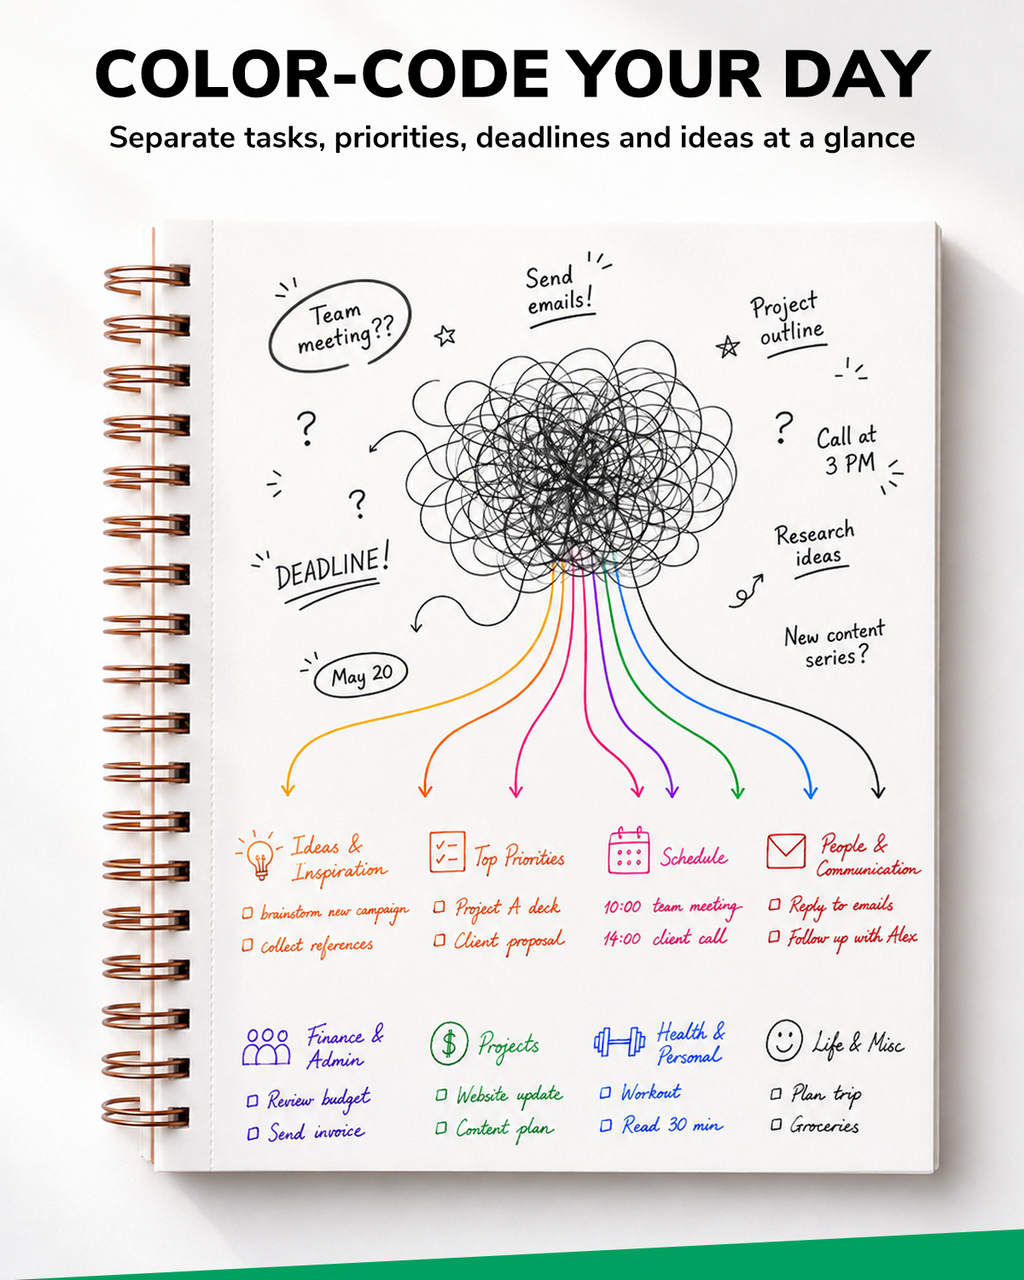 COLOR-CODE YOUR DAY
Separate tasks, priorities, deadlines and ideas at a glance
Team
meeting??
Send
emails!
Project
outline
?
?
Call at
3 PM
?
DEADLINE!
Research
ideas
New content
series?
May 20
Ideas &
Inspiration
brainstorm new campaign
Collect references
Top Priorities
Project A deck
Client proposal
Schedule
10:00 team meeting
14:00 client call
People &
Communication
Reply to emails
Follow up with Alex
Finance &
Admin
Review budget
Send invoice
$
Projects
Website update
Content plan
Health &
Personal
Workout
Read 30 min
Life & Misc
Plan trip
Groceries